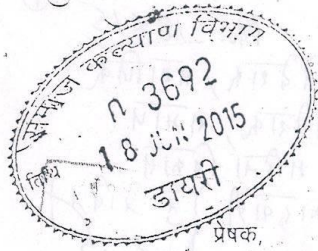 समाज कल्याण विभाग
n 3692
18 JUN 2015
डायरी
प्रेषक,